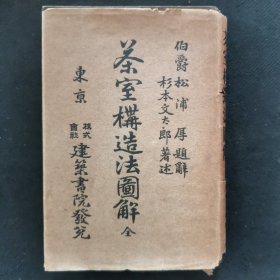 伯爵松浦厚題辭
杉本文太郎著述
茶室構造法圖解 全
東京 株式會社 建築書院發兌